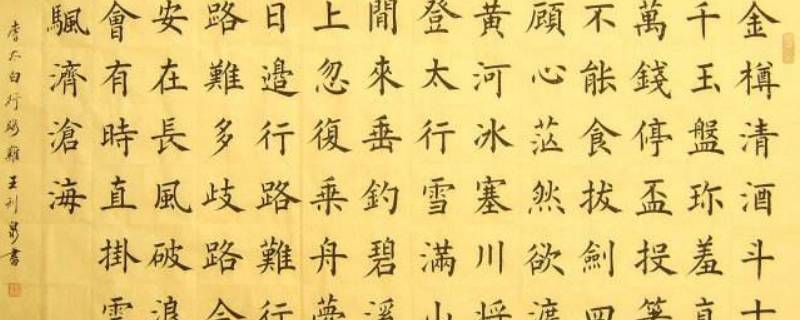 金樽清酒斗十
千玉盤珎羞直
萬錢停盃投箸
不能食拔劍四
顧心茫然欲渡
黃河冰塞川將
登太行雪滿山
閒來垂釣碧溪
上忽復乘舟夢
日邊行路難行
路難多歧路今
安在長風破浪
會有時直掛雲
颿濟滄海
李太白行路難王書